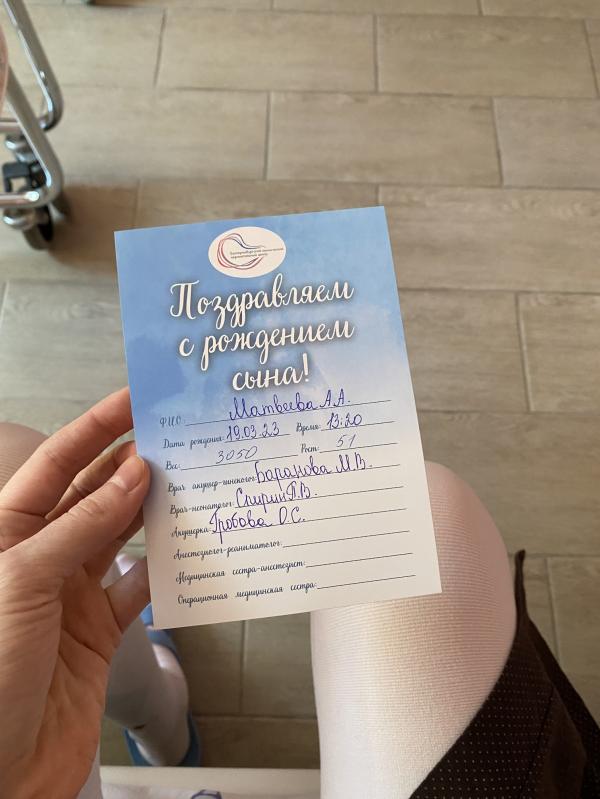 Екатеринбургский клинический
перинатальный центр
Поздравляем
с рождением
сына!
Ф.И.О. Матвеева А.А.
Дата рождения: 19.03.23 Время: 13:20
Вес: 3050 Рост: 51
Врач акушер-гинеколог: Баранова М.В.
Врач-неонатолог: Спирин П.В.
Акушерка: Гробова О.С.
Анестезиолог-реаниматолог:
Медицинская сестра-анестезист:
Операционная медицинская сестра: